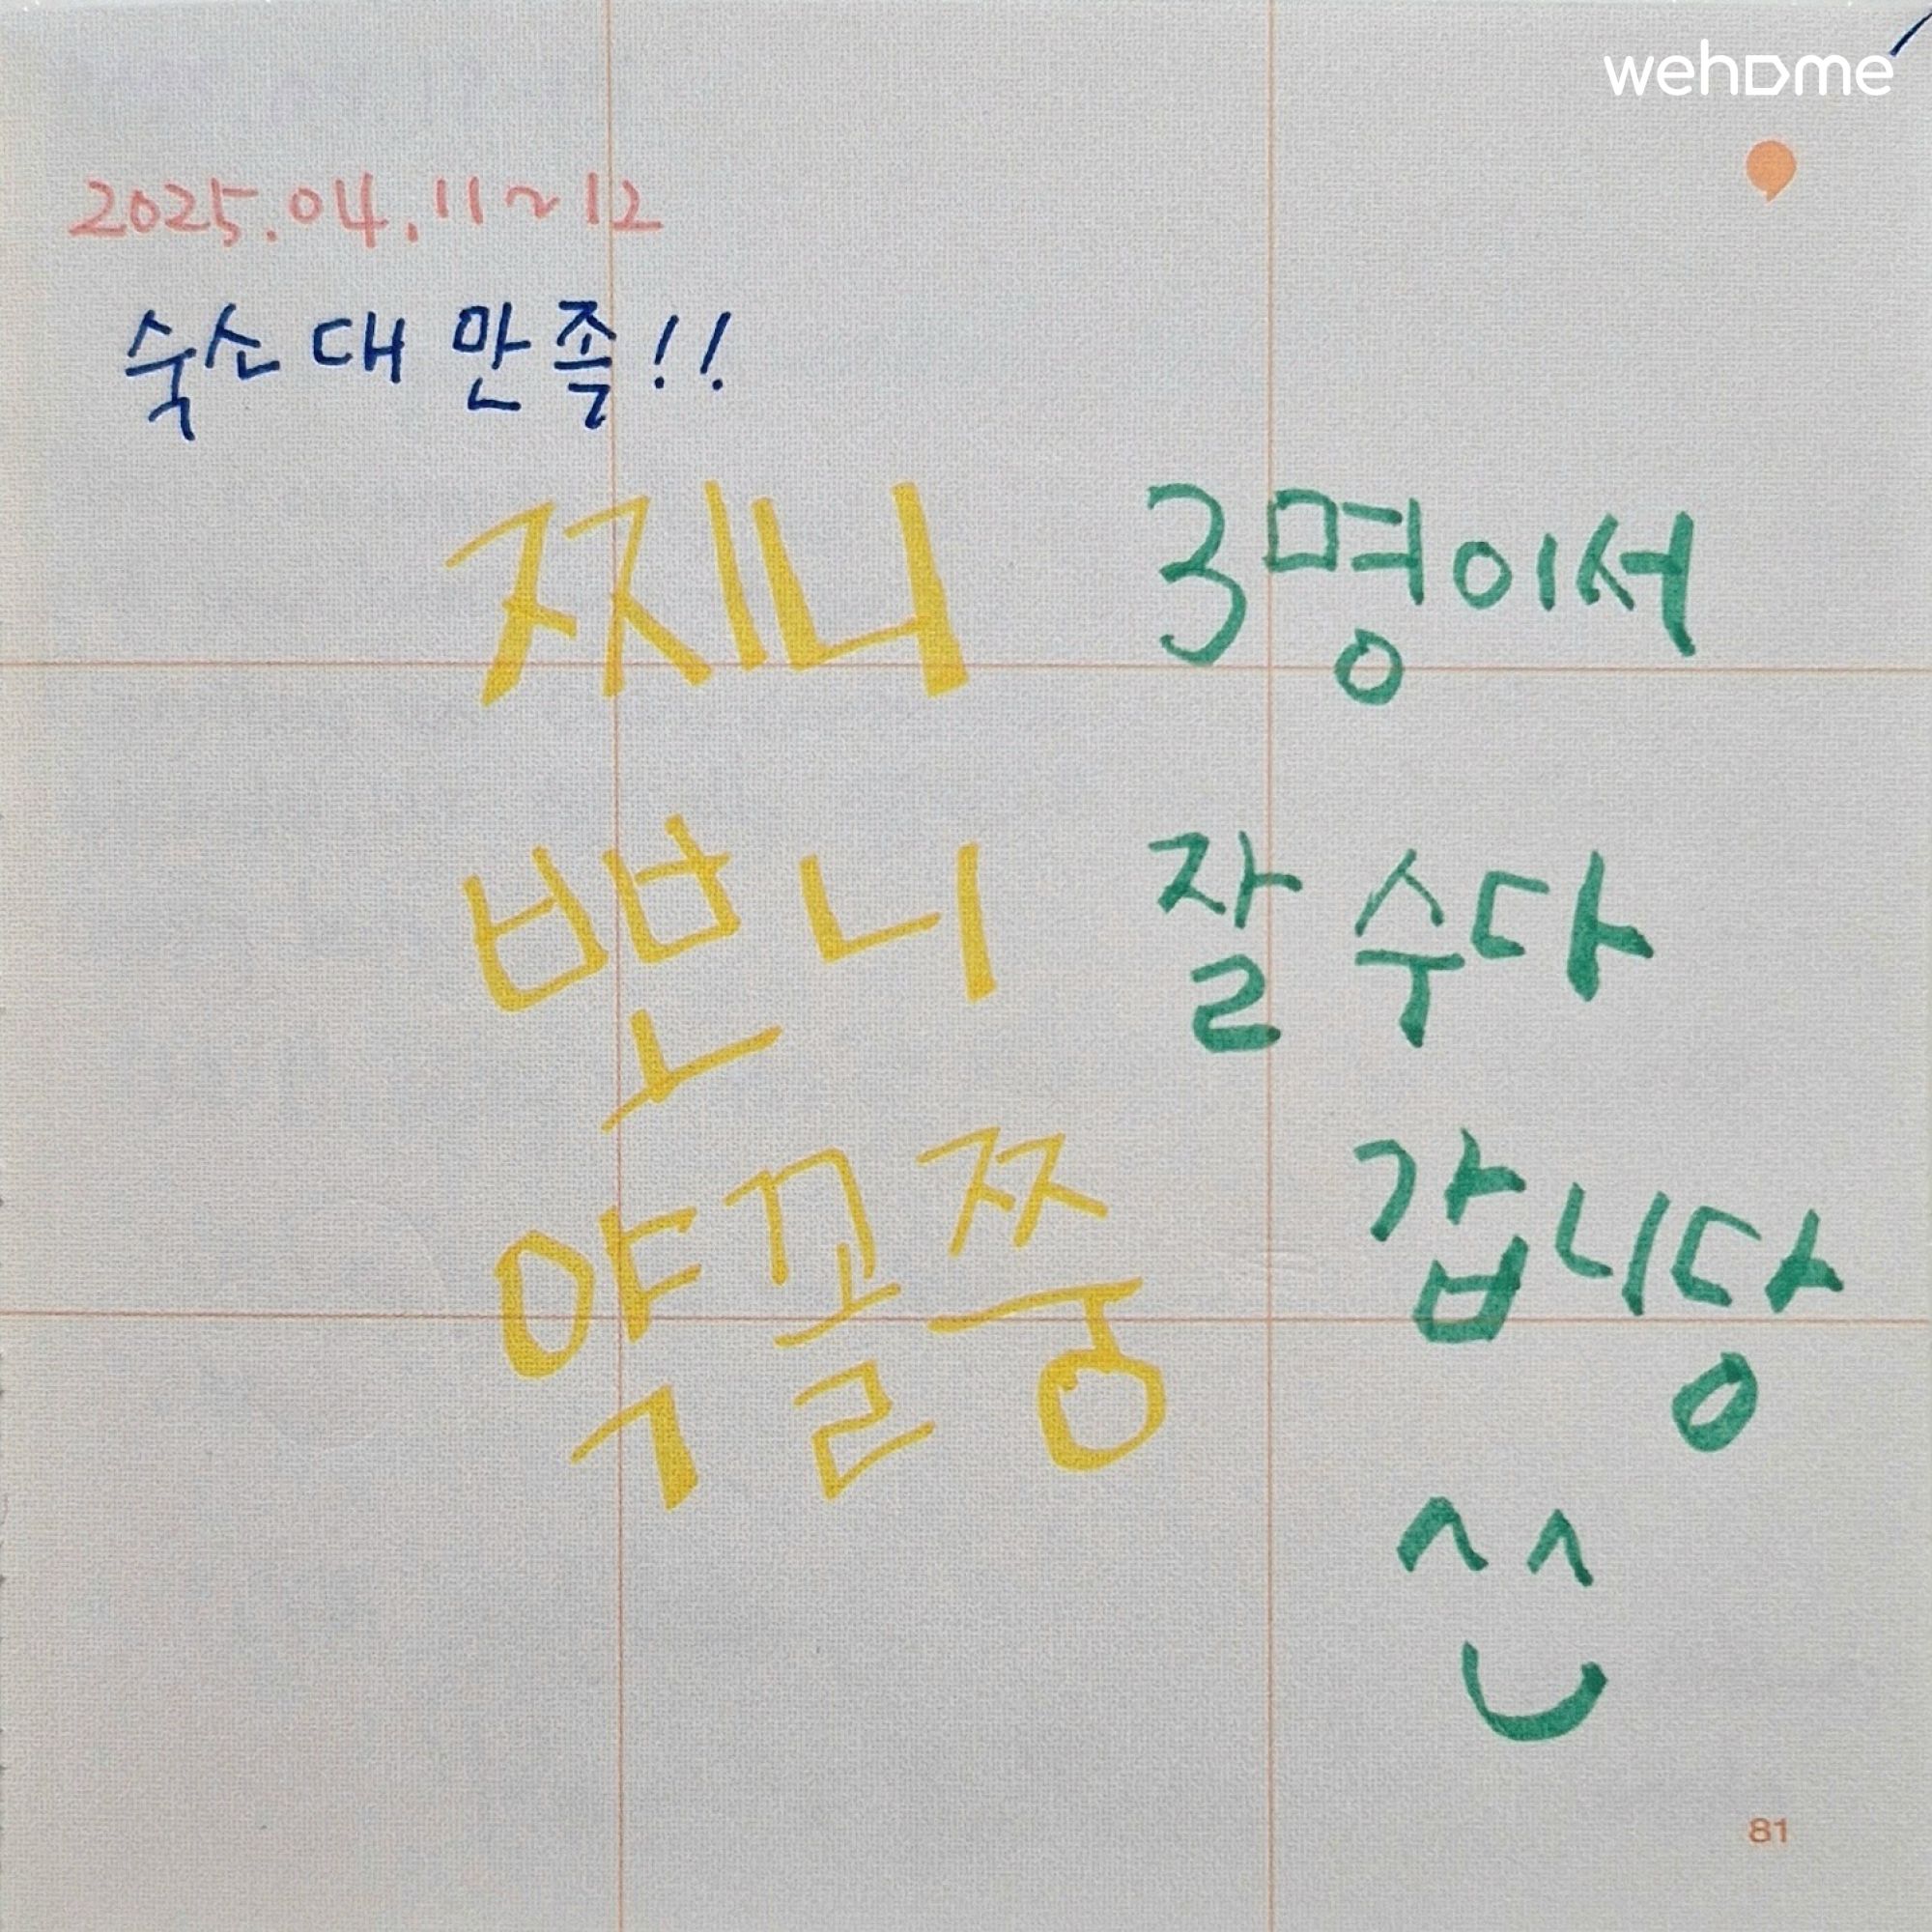 wehome
2025.04.11~12
숙소 대 만족!!
찌니 3명이서
뽄니 잘 수다
약꼴쭝 갑니당
^^
81